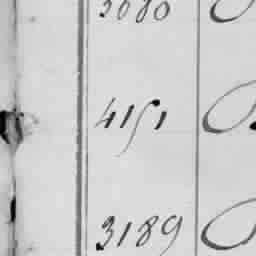 3080
4151
3189